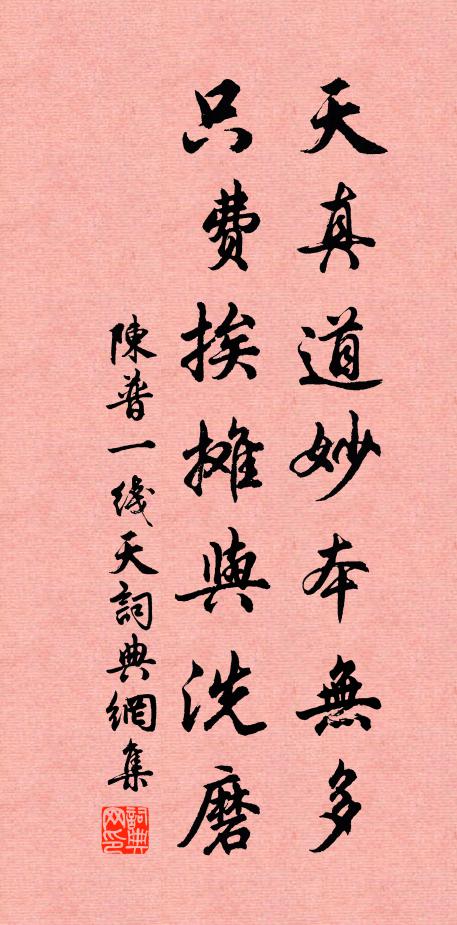 天真道妙本無多
只費挨攤與洗磨
陳普一线天詞典網集
詞典网印